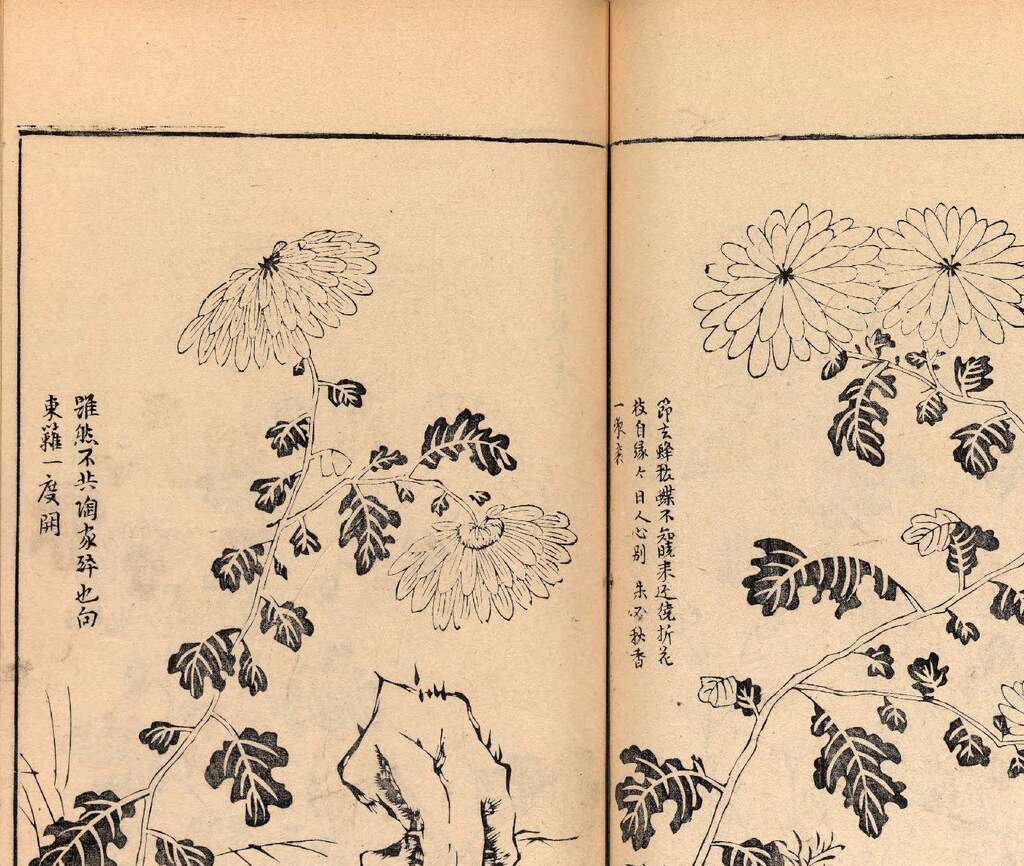 節去蜂愁蝶不知曉来还繞折花
枝自縁今日人心别未必秋香
一夜衰
雖然不共陶家醉也向
東籬一度開